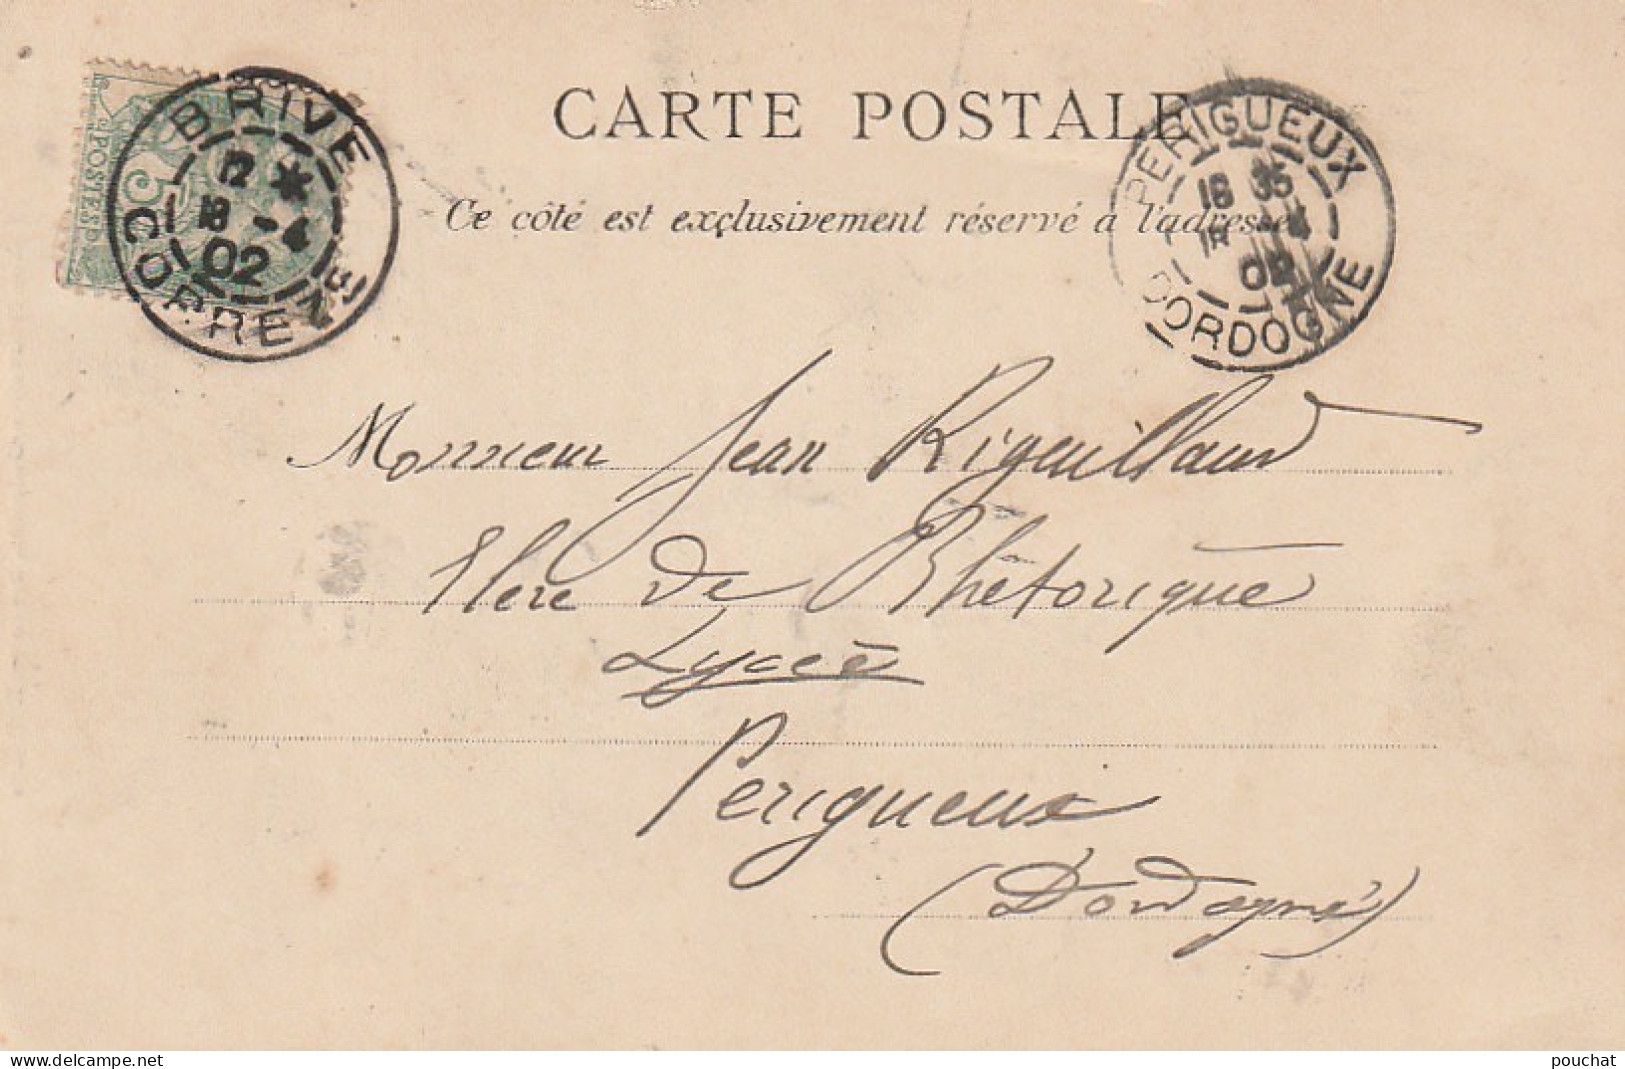 CARTE POSTALE
Ce côté est exclusivement réservé à l'adresse
POSTES
5
BRIVE
12 *
18 -4
02
CORREZE
PERIGUEUX
18 35
18 -4
02
DORDOGNE
Monsieur Jean Rigeuillaud
Elere de Rhétorique
Lycée
Perigueux
(Dordogne)
www.delcampe.net
pouchat